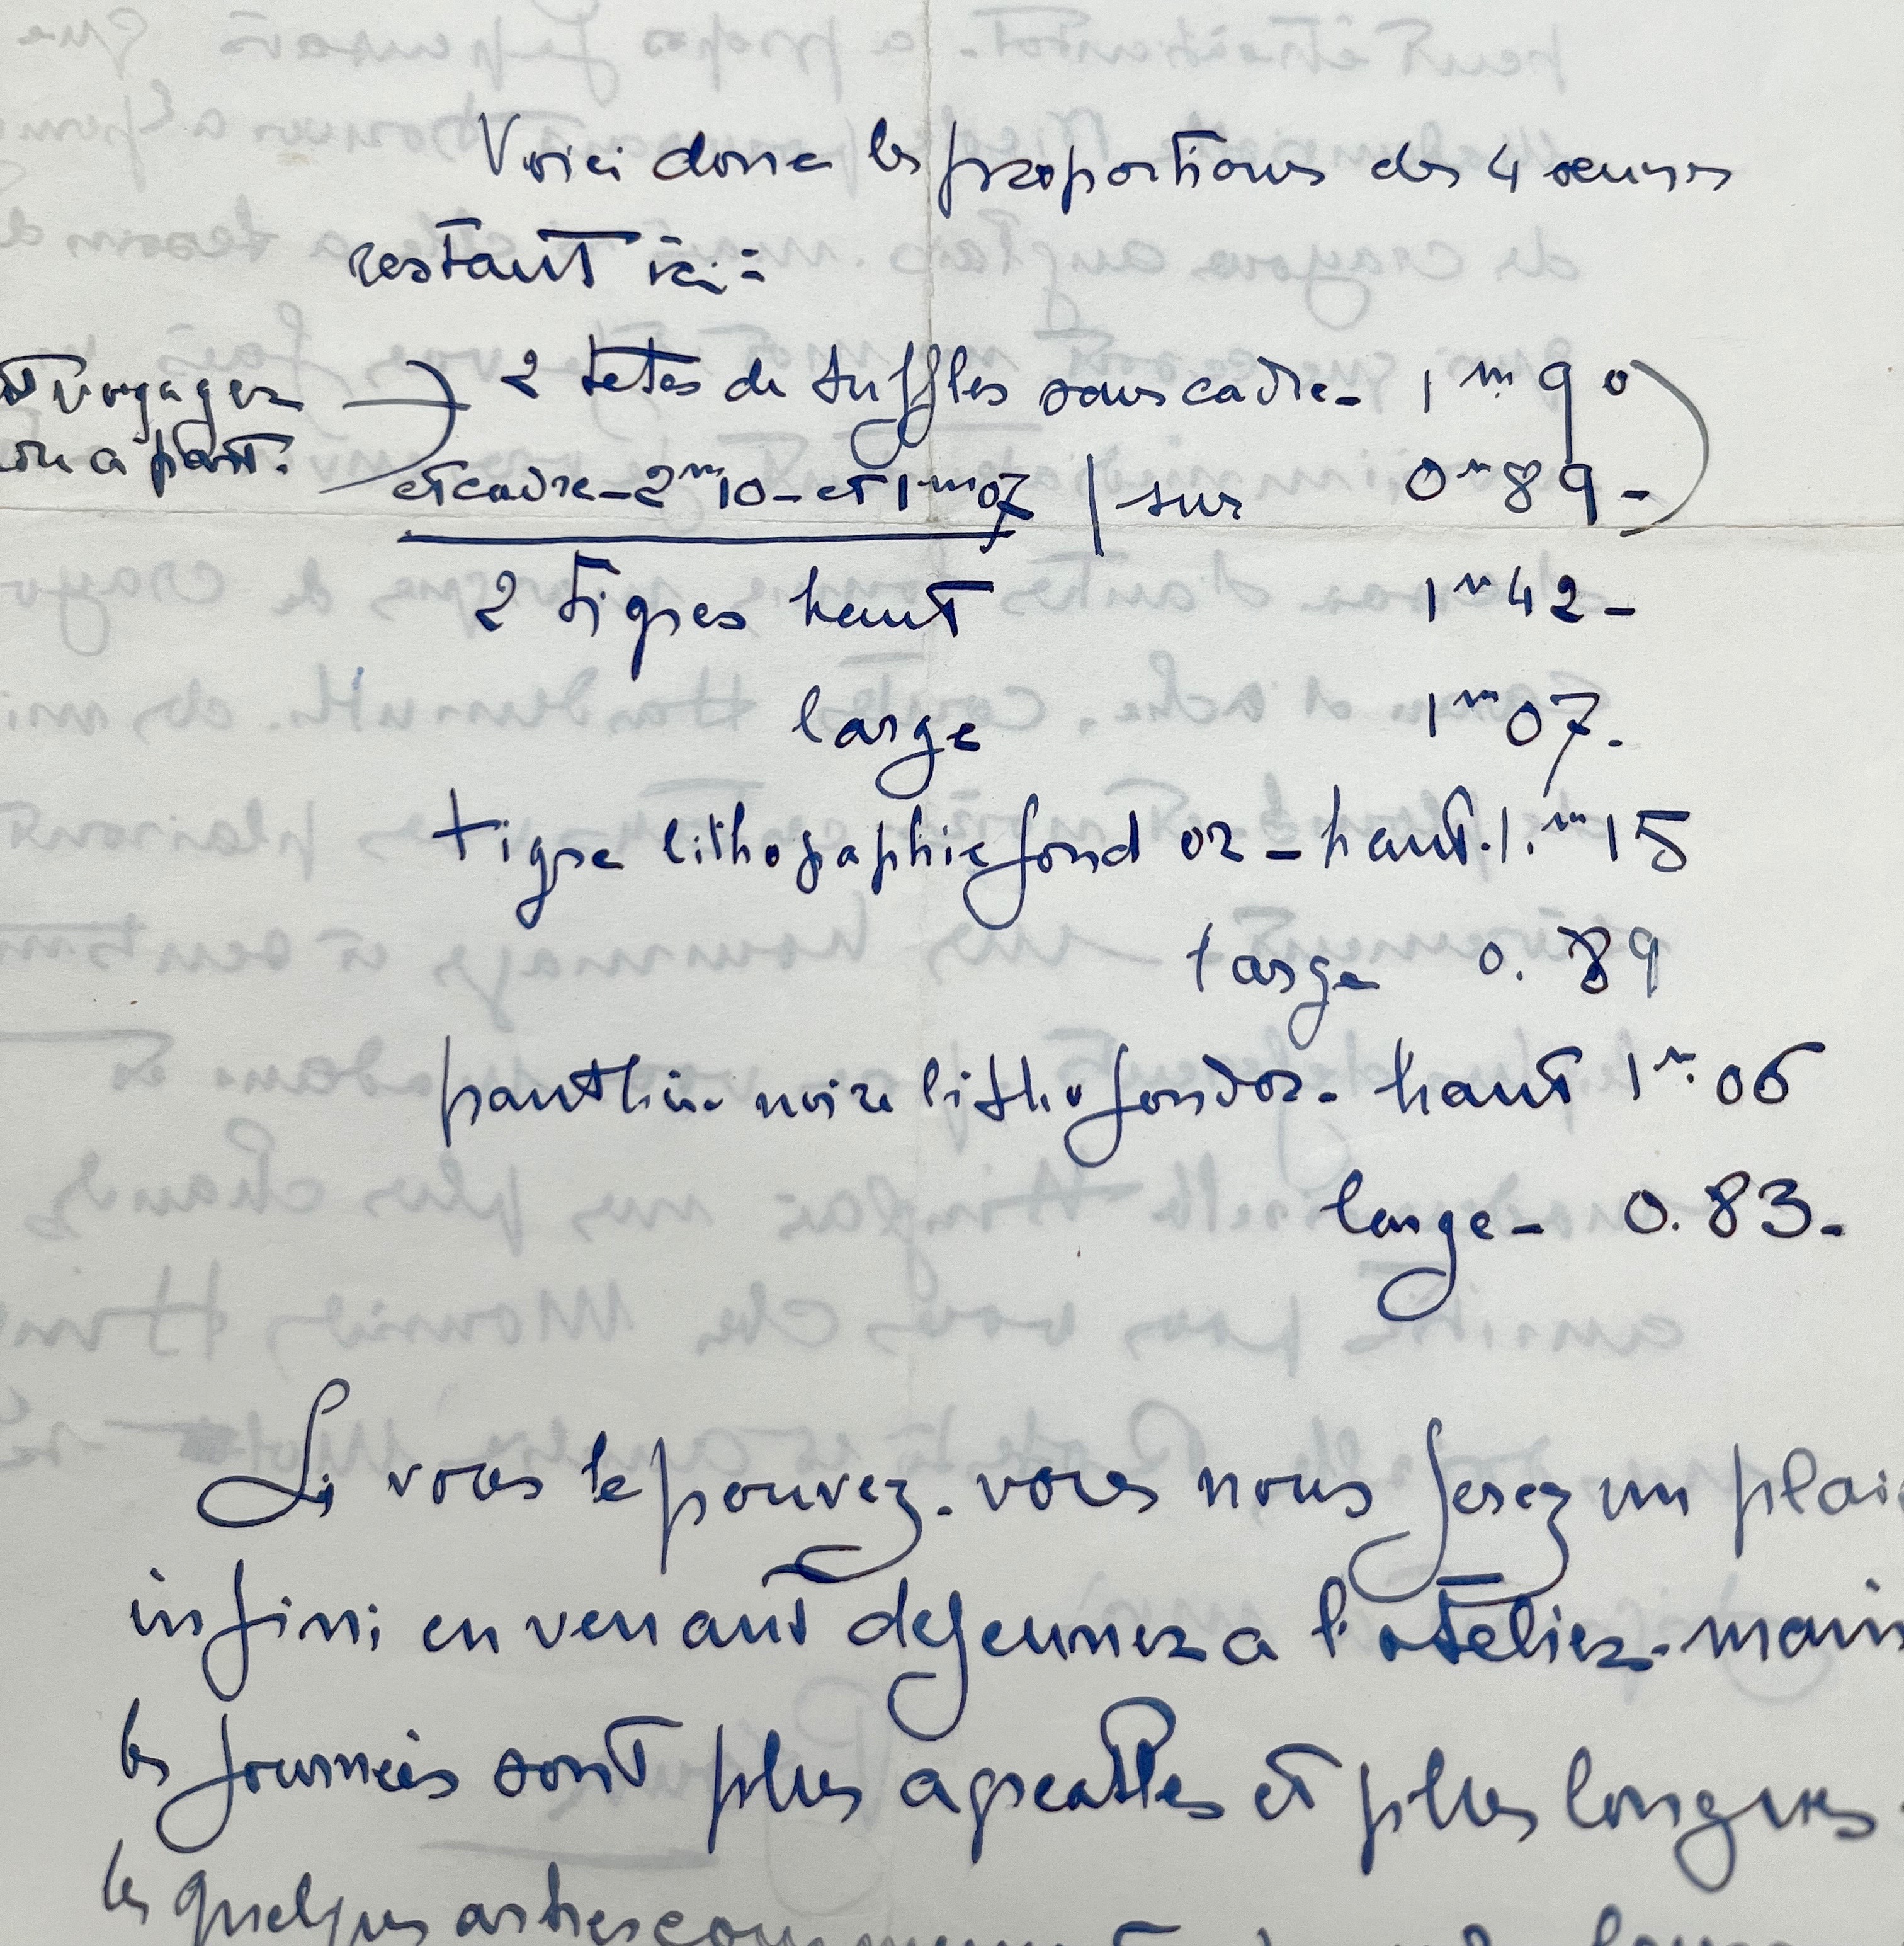 Voici donc les proportions des 4 œuvres
restant ici :
voyager
a part.
2 tetes de buffles sans cadre - 1 m 90
et cadre - 2m10 - et 1m07 | sur 0m89 -
2 tigres haut 1m42 -
large 1m07.
tigre lithographie fond or - haut. 1.m15
large 0. 89
panthère noire litho fond or - haut 1m. 06
large - 0. 83 -
Si vous le pouvez - vous nous ferez un plai
infini en venant dejeuner a l'atelier - main
les journées sont plus agreables et plus longues -
les quelques arbres